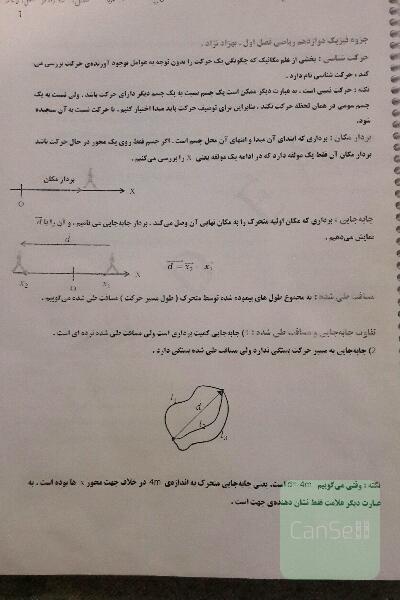 1
جزوه فیزیک دوازدهم ریاضی فصل اول . بهزاد نژاد .
حرکت شناسی : بخشی از علم مکانیک که چگونگی یک حرکت را بدون توجه به عوامل بوجود آورنده‌ی حرکت بررسی می
کند ، حرکت شناسی نام دارد .
نکته : حرکت نسبی است . به عبارت دیگر ممکن است یک جسم نسبت به یک جسم دیگر دارای حرکت باشد . ولی نسبت به یک
جسم سومی در همان لحظه حرکت نکند . بنابراین برای توصیف حرکت باید مبدا اختیار کنیم . تا حرکت نسبت به آن سنجیده
شود.
بردار مکان : برداری که ابتدای آن مبدا و انتهای آن محل جسم است . اگر جسم فقط روی یک محور در حال حرکت باشد
بردار مکان آن فقط یک مولفه دارد که در ادامه یک مولفه یعنی x را بررسی می‌کنیم .
بردار مکان
O x
جابه‌جایی : برداری که مکان اولیه متحرک را به مکان نهایی آن وصل می‌کند . بردار جابه‌جایی می نامیم . و آن را با d
نمایش می‌دهیم .
d
x₂ O x₁ x
d = x₂ - x₁
مسافت طی شده : به مجموع طول های پیموده شده توسط متحرک ( طول مسیر حرکت ) مسافت طی شده می‌گوییم .
تفاوت جابه‌جایی و مسافت طی شده : 1) جابه‌جایی کمیت برداری است ولی مسافت طی شده نرده ای است .
2) جابه‌جایی به مسیر حرکت بستگی ندارد ولی مسافت طی شده بستگی دارد .
l₁
d
l₂
l₃
نکته : وقتی می‌گوییم d=-4m است. یعنی جابه‌جایی متحرک به اندازه‌ی 4m در خلاف جهت محور x ها بوده است . به
عبارت دیگر علامت فقط نشان دهنده‌ی جهت است .
CanSell